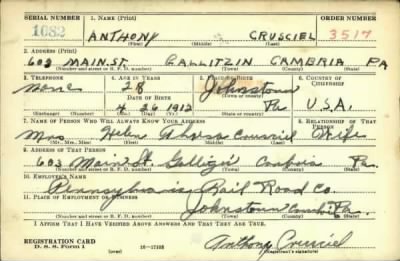 SERIAL NUMBER 1. NAME (Print)
1082 ANTHONY CRUSCIEL 3517
(First) (Middle) (Last)
2. ADDRESS (Print)
603 MAIN.ST. GALLITZIN CAMBRIA PA
(Number and street or R. F. D. number) (Town) (County) (State)
3. TELEPHONE 4. AGE IN YEARS 5. PLACE OF BIRTH 6. COUNTRY OF CITIZENSHIP
None 28 Johnstown
DATE OF BIRTH (Town or county)
4 26 1912 Pa U.S.A.
(Exchange) (Number) (Mo.) (Day) (Yr.) (State or country)
7. NAME OF PERSON WHO WILL ALWAYS KNOW YOUR ADDRESS 8. RELATIONSHIP OF THAT PERSON
Mrs Helen Crusciel Wife
(Mr., Mrs., Miss) (First) (Middle) (Last)
9. ADDRESS OF THAT PERSON
603 Main St. Pa.
(Number and street or R. F. D. number) (Town) (County) (State)
10. EMPLOYER'S NAME
Pennsylvania Rail Road Co.
11. PLACE OF EMPLOYMENT OR BUSINESS
Johnstown Pa.
(Number and street or R. F. D. number) (Town) (County) (State)
I AFFIRM THAT I HAVE VERIFIED ABOVE ANSWERS AND THAT THEY ARE TRUE.
REGISTRATION CARD
D. S. S. Form 1 (over) 16—17105 Anthony Crusciel
(Registrant's signature)